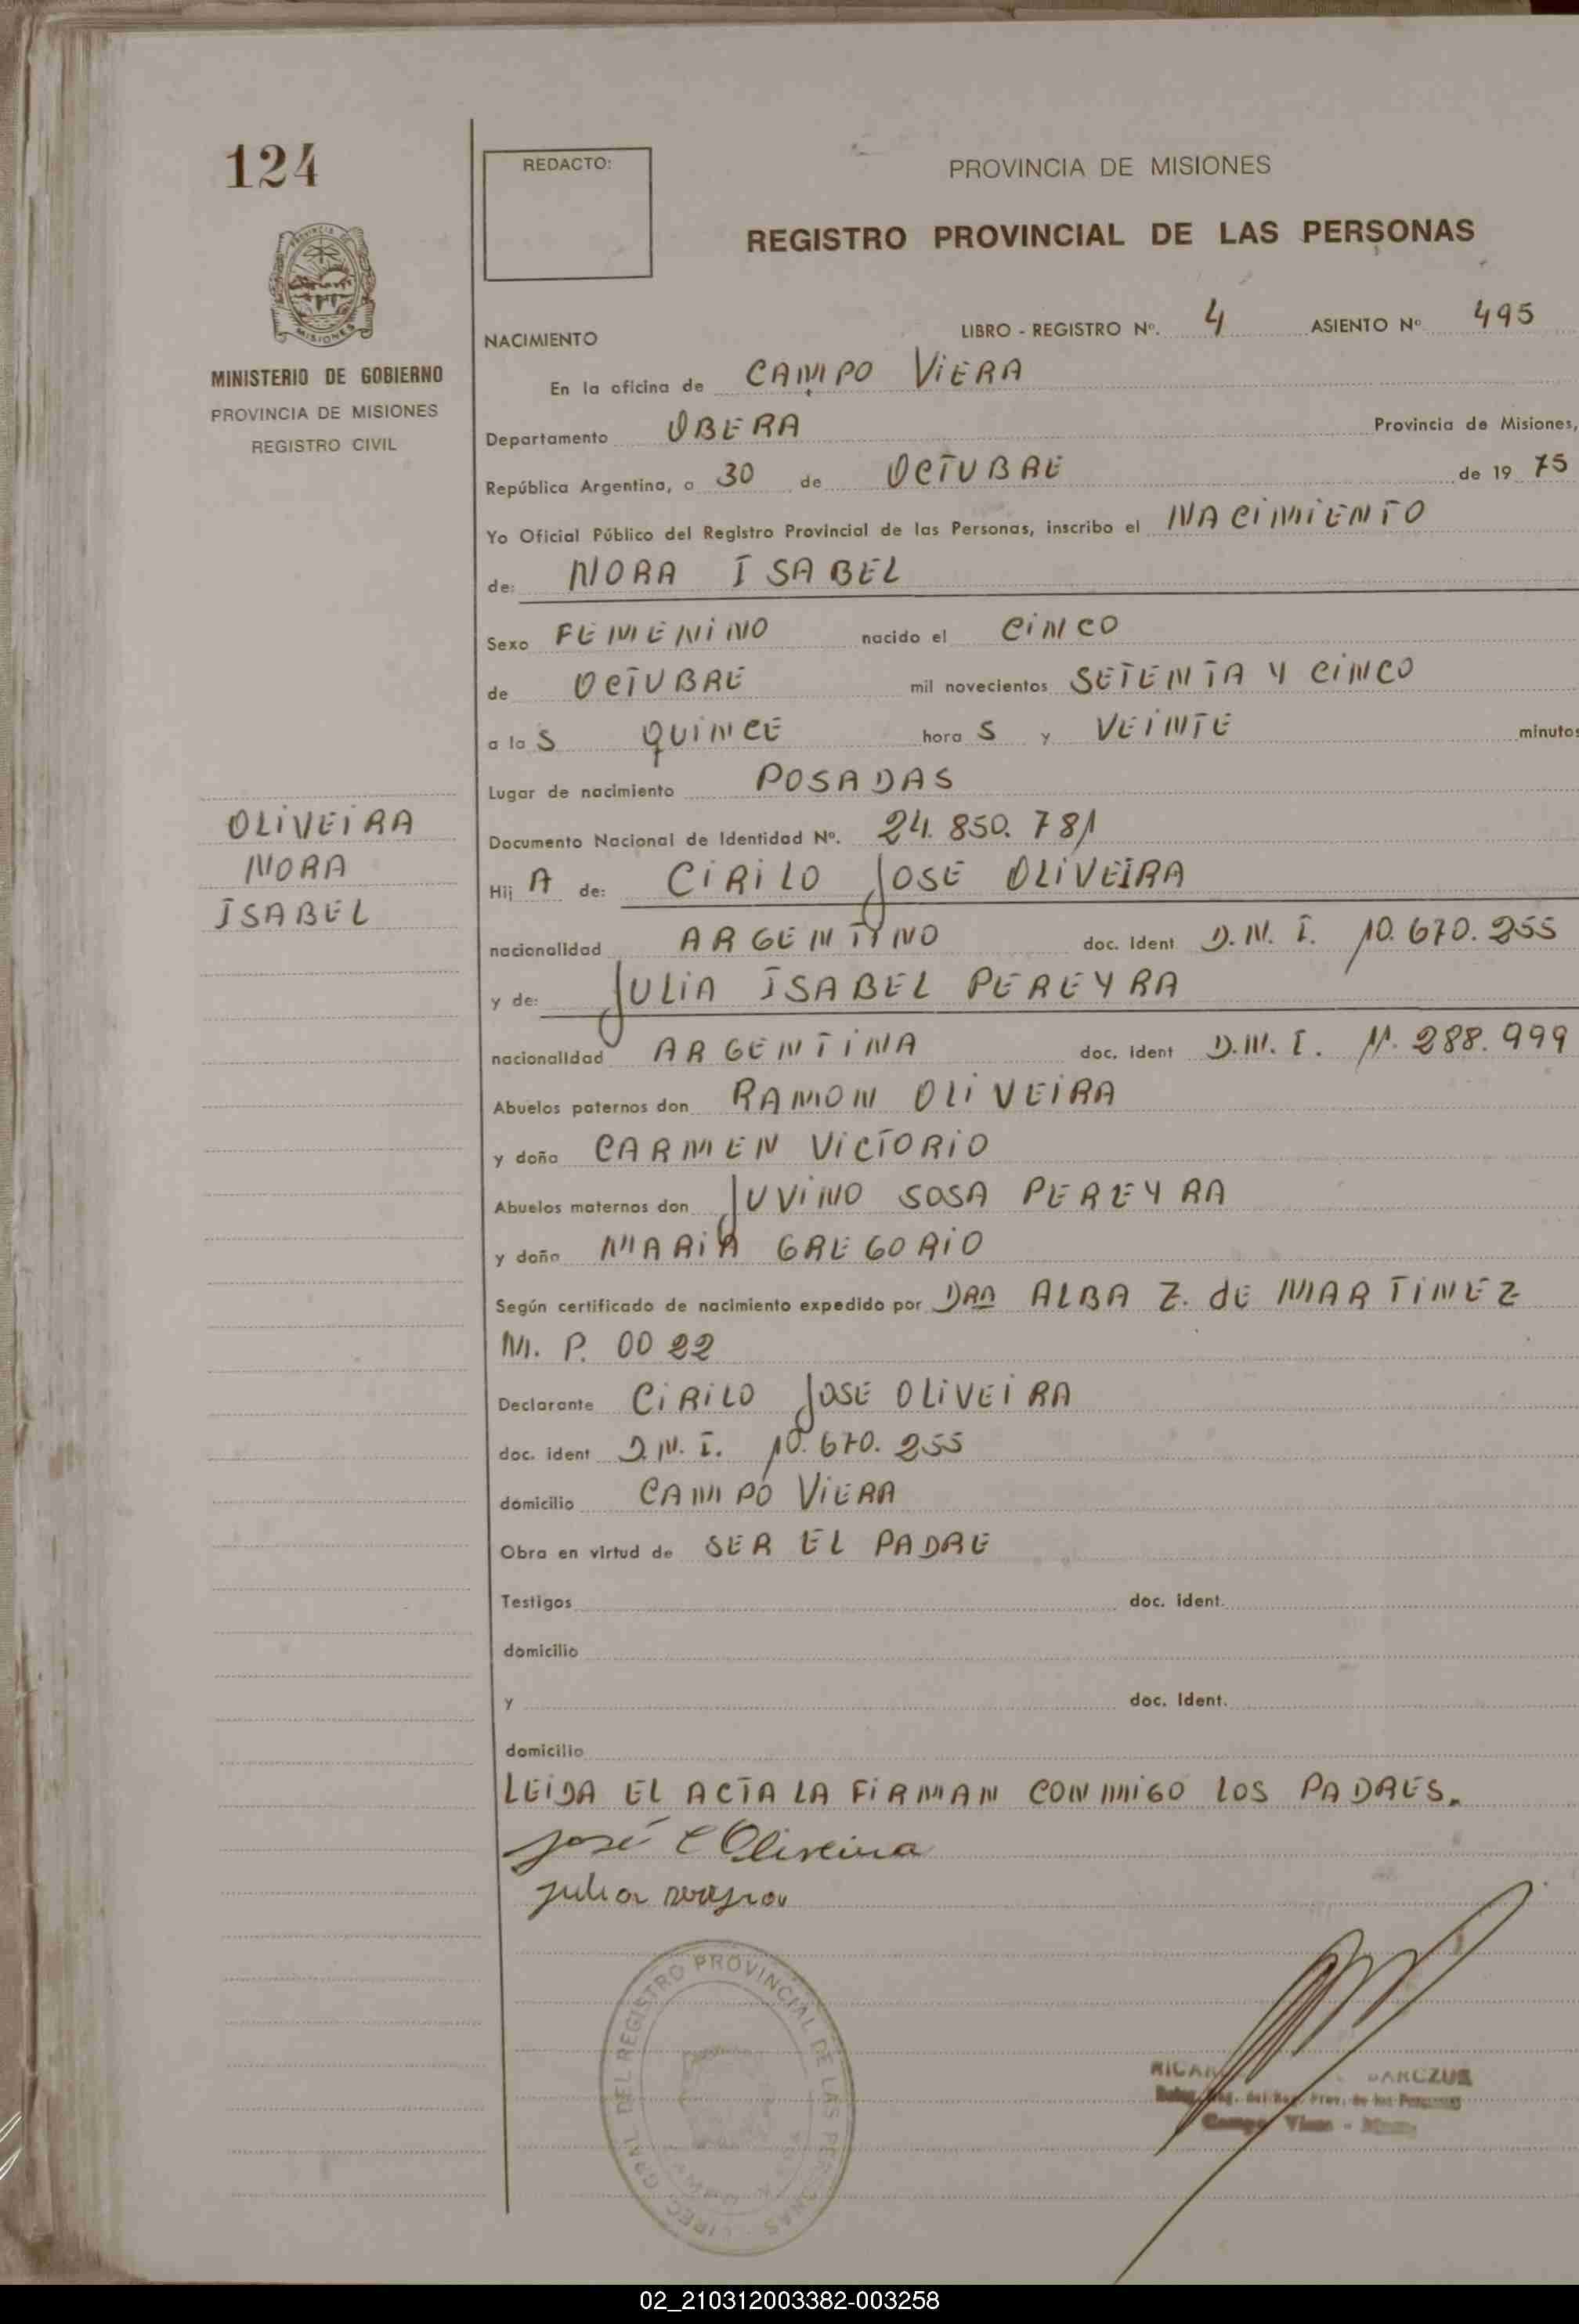 124
REDACTO:
PROVINCIA DE MISIONES
REGISTRO PROVINCIAL DE LAS PERSONAS
MISIONES
MINISTERIO DE GOBIERNO
PROVINCIA DE MISIONES
REGISTRO CIVIL
NACIMIENTO LIBRO - REGISTRO Nº. 4 ASIENTO Nº 495
En la oficina de CAMPO VIERA
Departamento OBERA Provincia de Misiones,
República Argentina, a 30 de OCTUBRE de 19 75
Yo Oficial Público del Registro Provincial de las Personas, inscribo el NACIMIENTO
de: NORA ISABEL
Sexo FEMENINO nacido el CINCO
de OCTUBRE mil novecientos SETENTA Y CINCO
a la S QUINCE hora S y VEINTE minutos
Lugar de nacimiento POSADAS
Documento Nacional de Identidad Nº. 24.850.781
OLIVEIRA
NORA
ISABEL
Hij A de: CIRILO JOSE OLIVEIRA
nacionalidad ARGENTINO doc. Ident D.N.I. 10.670.255
y de: JULIA ISABEL PEREYRA
nacionalidad ARGENTINA doc. Ident D.N.I. 11.288.999
Abuelos paternos don RAMON OLIVEIRA
y doña CARMEN VICTORIO
Abuelos maternos don JUVINO SOSA PEREYRA
y doña MARIA GREGORIO
Según certificado de nacimiento expedido por DRA ALBA Z. de MARTINEZ
M. P. 0022
Declarante CIRILO JOSE OLIVEIRA
doc. ident D.N.I. 10.670.255
domicilio CAMPO VIERA
Obra en virtud de SER EL PADRE
Testigos doc. ident.
domicilio
y doc. Ident.
domicilio
LEIDA EL ACTA LA FIRMAN CONMIGO LOS PADRES.
José C Oliveira
Julia
DIREC. GRAL. DEL REGISTRO PROVINCIAL DE LAS PERSONAS
Prov. de las Personas
Campo Viera
02_210312003382-003258